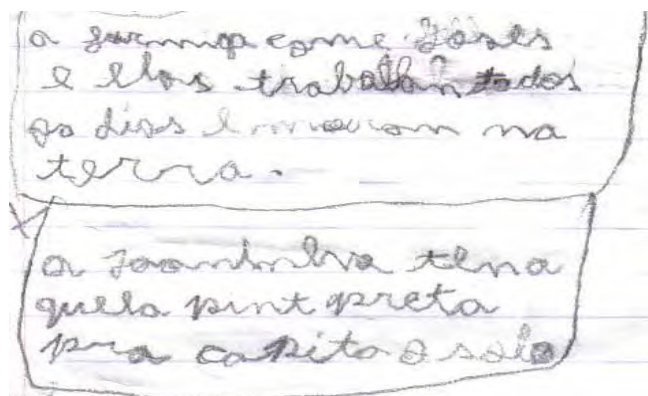 a formiga come foles
e elas trabalhan todos
os dias e moram na
terra.
a joaninha tena
quela pint preta
pra capita o solo